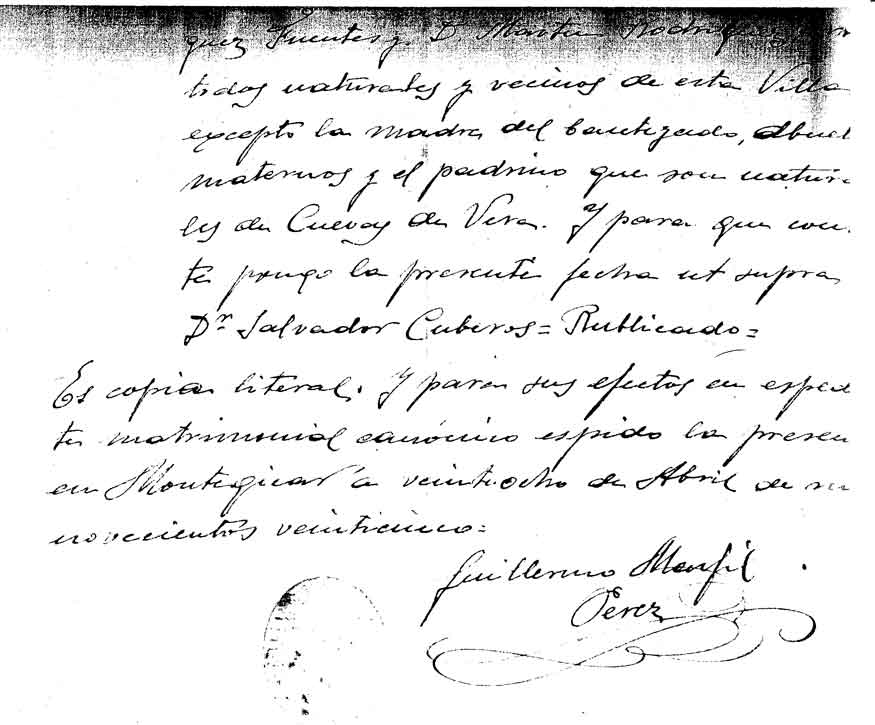 quez Fuentes y D. Martin Rodriguez
todos naturales y vecinos de esta Villa
excepto la madre del bautizado, abuel
maternos y el padrino que son natura
les de Cuevas de Vera. Y para que cons
te pongo la presente fecha ut supra
Dr Salvador Cuberos = Rublicado =
Es copia literal. Y para sus efectos en esped
te matrimonial canónico espido la presen
en Montegicar a veintiocho de Abril de m
novecientos veinticinco =
Guillermo
Perez